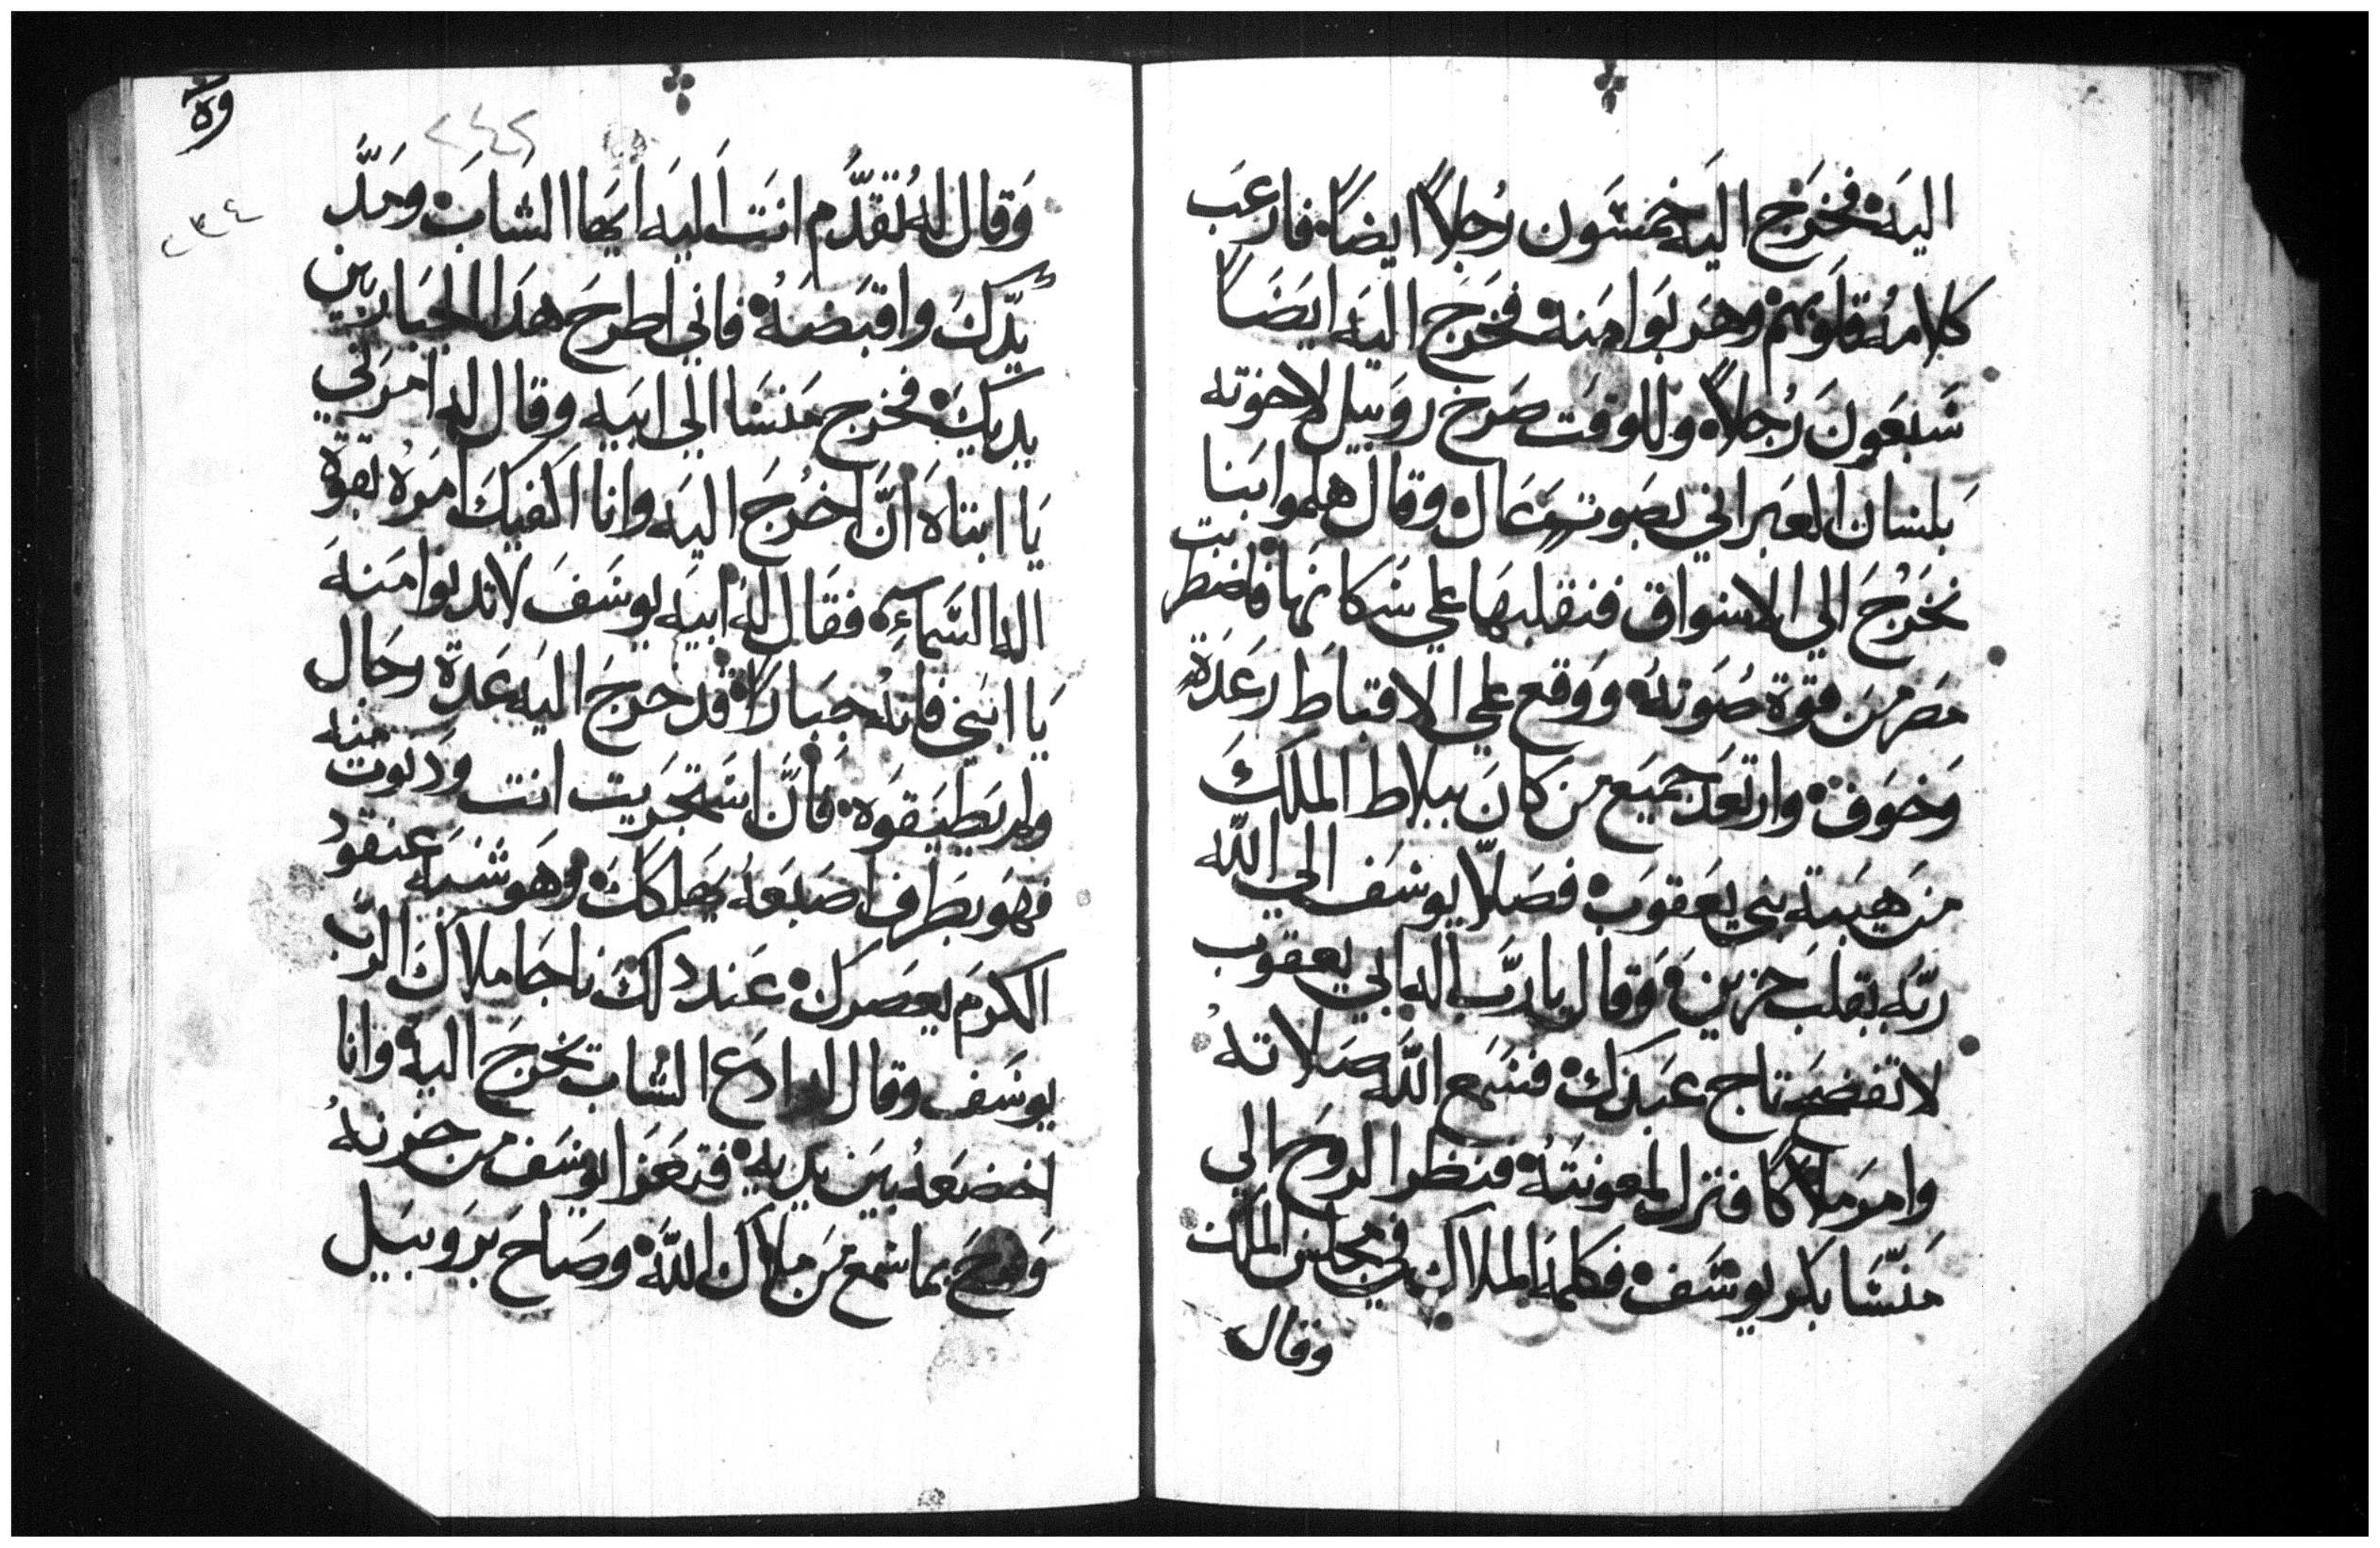 اليه فخرج اليه خمسون رجلاً ايضاً فارعب
كلامه قلوبهم وهربوا منه فخرج اليه ايضاً
سبعون رجلاً وللوقت صرخ روبيل لاخوته
بلسان العبراني بصوت عال وقال هلموا بنا
نخرج الي الاسواق فنقلبها علي سكانها فاضطربت
مصر من قوة صوته ووقع علي الاقباط رعدة
وخوف وارتعد جميع من كان ببلاط الملك
من هيبة بني يعقوب فصلا يوسف الي الله
ربه بقلب حزين وقال يا رب اله ابي يعقوب
لا تفضح تاج عبدك فسمع الله صلاته
وامر ملاكا فنزل لمعونته فنظر الروح الي
منسا بكر يوسف فكلمه الملاك في مجلس الملك
وقال
وقال له تقدم انت اليه ايها الشاب ومد
يدك واقبضه فاني اطرح هدا الجبار بين
يديك فخرج منسا الي ابيه وقال له امرني
يا ابتاه ان اخرج اليه وانا اكفيك امره بقوة
اله السماء فقال له ابيه يوسف لا تدنوا منه
يا ابني فانه جبارا قد خرج اليه عدة رجال
ولم يطيقوه فان استجريت انت ودنوت منه
فهو بطرف اصبعه يهلكك وهو شبه عنقود
الكرم يعصرك عند دلك ناجا ملاك الرب
يوسف وقال له ادع الشاب يخرج اليه وانا
اخضعه بين يديه فتعزا يوسف من حزنه
وفرح بما سمع من ملاك الله وصاح بروبيل